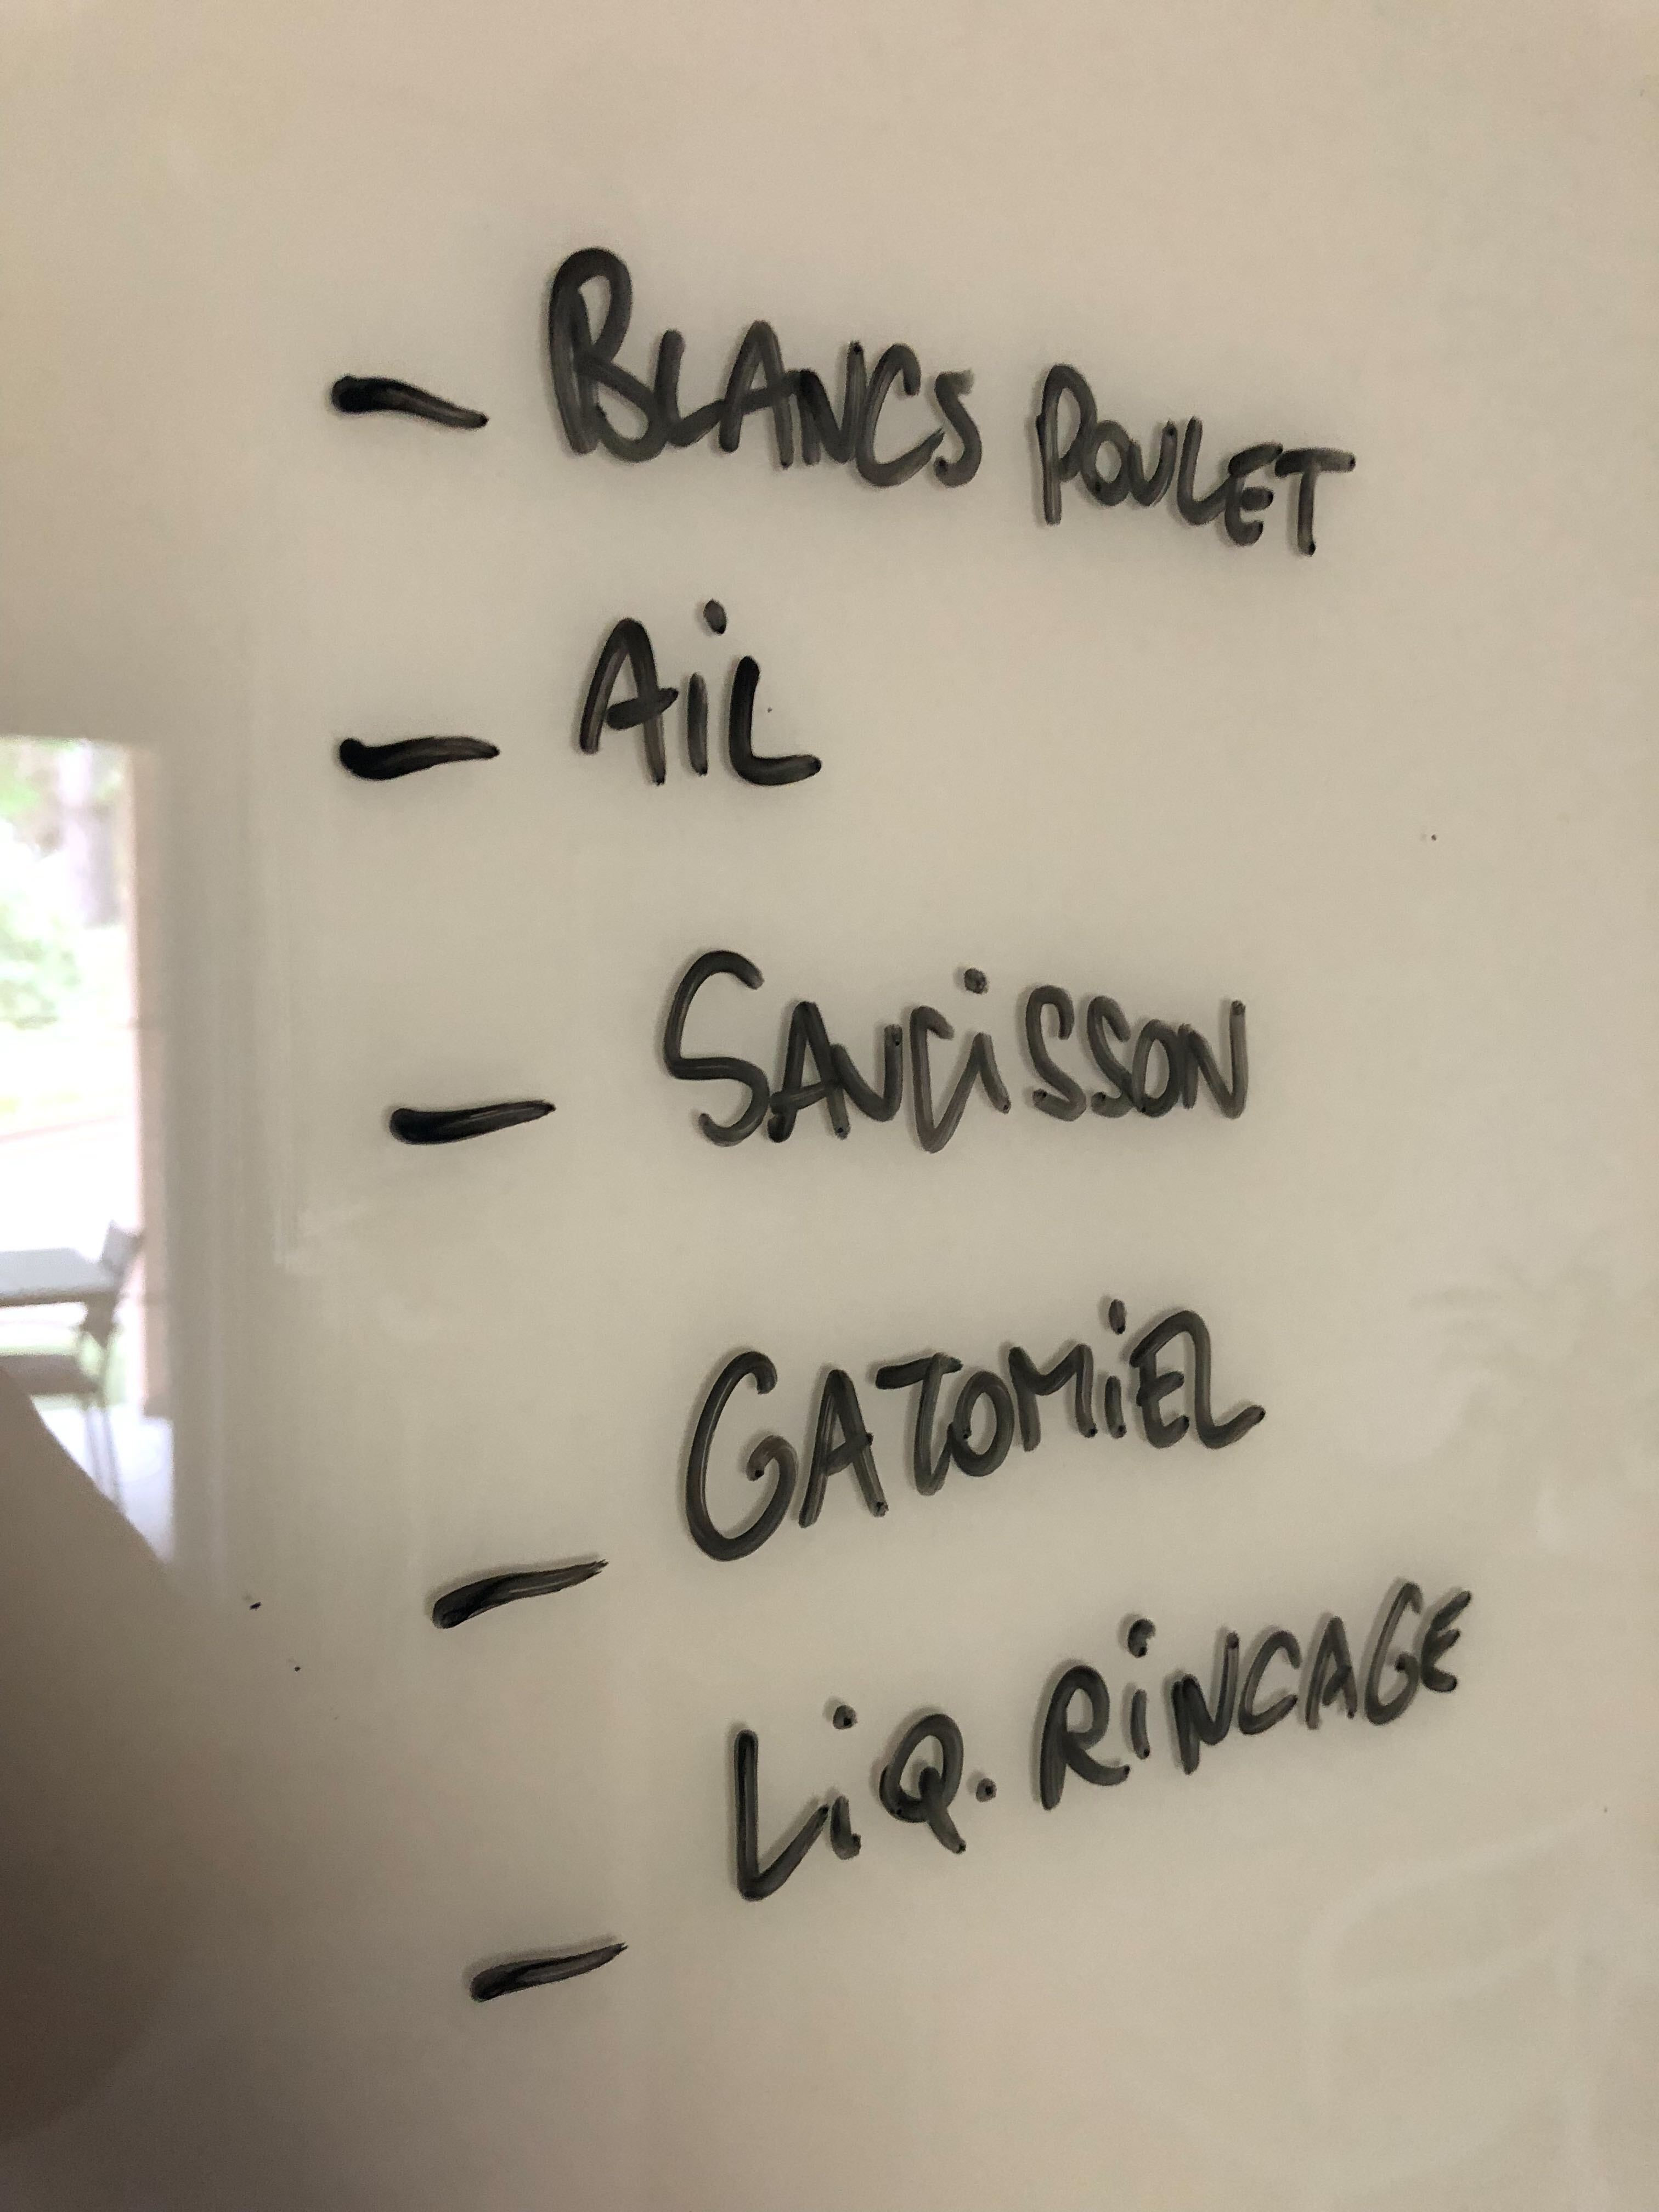 - BLANCS POULET
- AiL
- SAUCiSSON
- GATOMiEL
- LiQ. RiNCAGE